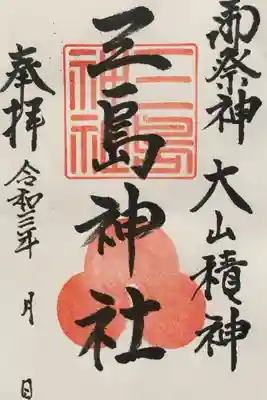 雨祭神 大山積神
三島神社
奉拝
令和三年 月 日
三島
神社